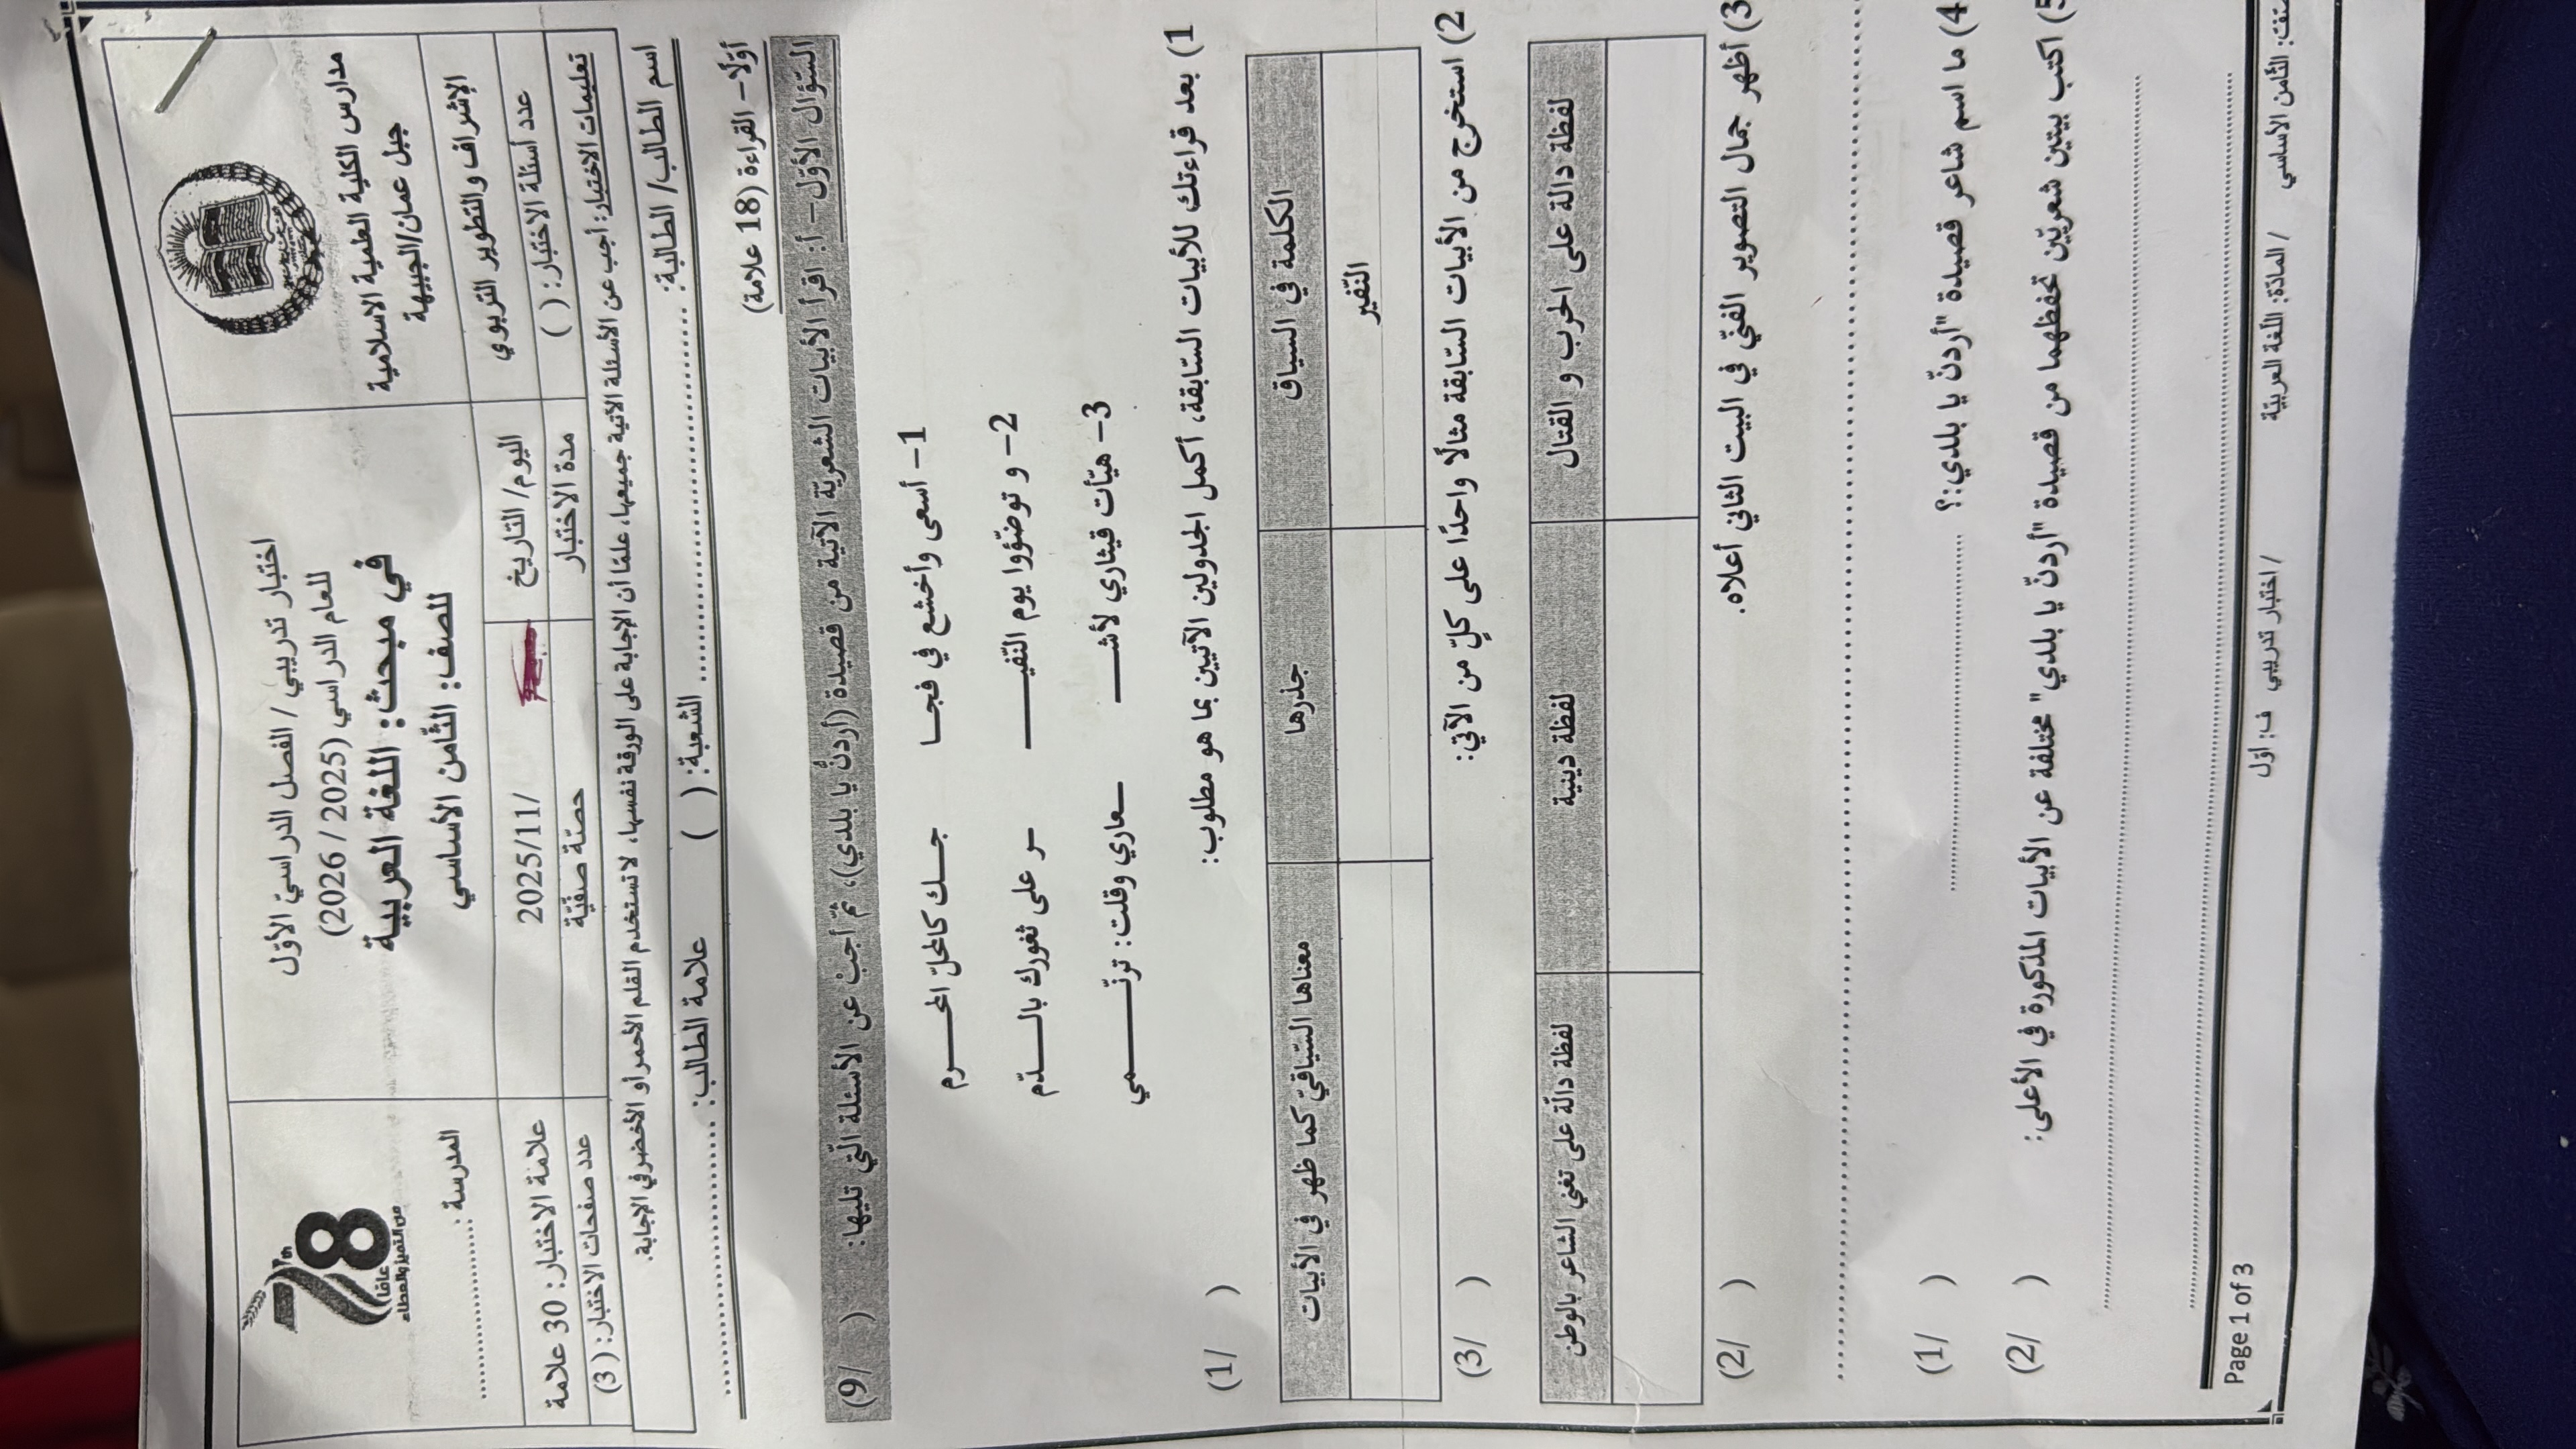 مدارس الكلية العلمية الاسلامية
جبل عمان/الجبيهة
اختبار تدريبي / الفصل الدراسيّ الأوّل
للعام الدراسي (2025 / 2026)
في مبحث: اللغة العربية
للصف: الثّامن الأساسي
78
th
عامًا
من التميز والعطاء
المدرسة : ..............................
الإشراف والتطوير التربوي
اليوم/ التاريخ
2025/11/
علامة الاختبار: 30 علامة
عدد أسئلة الاختبار: ( )
مدة الاختبار
حصّة صفّيّة
عدد صفحات الاختبار: ( 3)
تعليمات الاختبار: أجب عن الأسئلة الآتية جميعها، علمًا أن الإجابة على الورقة نفسها، لا تستخدم القلم الأحمر أو الأخضر في الإجابة.
اسم الطالب/ الطالبة: .......................................... الشعبة: ( ) علامة الطالب: ..............................
أوّلًا- القراءة (18 علامة)
السّؤال الأوّل- أ: اقرأ الأبيات الشعريّة الآتية من قصيدة (أردنُّ يا بلدي)، ثمّ أجبْ عن الأسئلة الّتي تليها: (9/ )
1- أسعى وأخشع في فجـا جـــك كالمحلّ المحــــرم
2- و توضّؤوا يوم النّفيـــــ ـر على ثغورك بالـــدّم
3- هيّأت قيثاري لأشـــ ـــعاري وقلت: ترنّـــــمي
1) بعد قراءتك للأبيات السّابقة، أكمل الجدولين الآتيين بما هو مطلوب: (1/ )
الكلمة في السياق
جذرها
معناها السّياقيّ كما ظهر في الأبيات
النّفير
2) استخرج من الأبيات السّابقة مثالًا واحدًا على كلّ من الآتي: (3/ )
لفظة دالة على الحرب و القتال
لفظة دينية
لفظة دالّة على تغني الشاعر بالوطن
3) أظهر جمال التصوير الفنّي في البيت الثاني أعلاه. (2/ )
..........................................................................................
4) ما اسم شاعر قصيدة "أردنّ يا بلدي:؟ ........................................ (1/ )
5) اكتب بيتين شعريّين تحفظهما من قصيدة "أردنّ يا بلدي" مختلفة عن الأبيات المذكورة في الأعلى: (2/ )
..........................................................................................
..........................................................................................
الثّامن الأساسي / المادّة: اللّغة العربيّة / اختبار تدريبي ف: أوّل Page 1 of 3